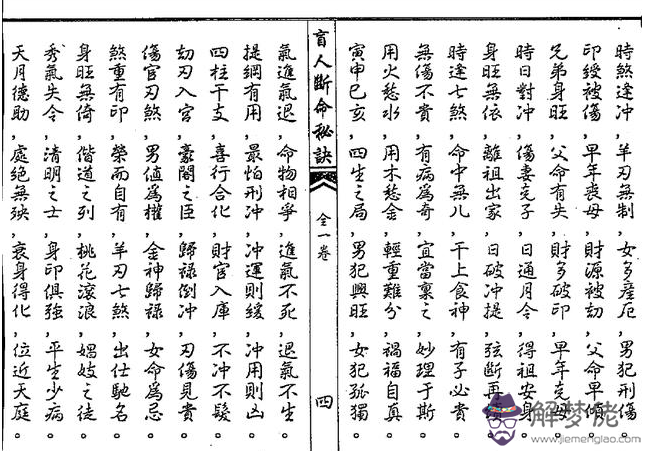 時煞逢冲，羊刃無制，女多產厄，男犯刑傷。
印綬被傷，早年喪母，財源被劫，父命早傾。
兄弟身旺，父命有失，財多破印，早年尅母。
時日對冲，傷妻尅子，日通月令，得祖安身。
身旺無依，離祖出家，日破冲提，弦斷再
時逢七煞，命中無兒，干上食神，有子必貴。
無傷不貴，有病為奇，宜當稟之，妙理于斯。
用火愁水，用木愁金，輕重難分，禍福自真。
寅申巳亥，四生之局，男犯興旺，女犯孤獨。
盲人斷命秘訣 全一卷 四
氣進氣退，命物相爭，進氣不死，退氣不生。
提綱有用，最怕刑冲，冲運則緩，冲用則凶。
四柱干支，喜行合化，財官入庫，不冲不發。
刼刃入宮，豪閣之臣，歸祿倒冲，刃傷見貴。
傷官刃煞，男值為權，金神歸祿，女命為忌。
煞重有印，榮而自有，羊刃七煞，出仕馳名。
身旺無倚，僧道之列，桃花滾浪，娼妓之徒。
秀氣失令，清明之士，身印俱強，平生少病。
天月德助，處絕無殃，衰身得化，位近天庭。
解梦能
https://www.jiemengjiao.com/